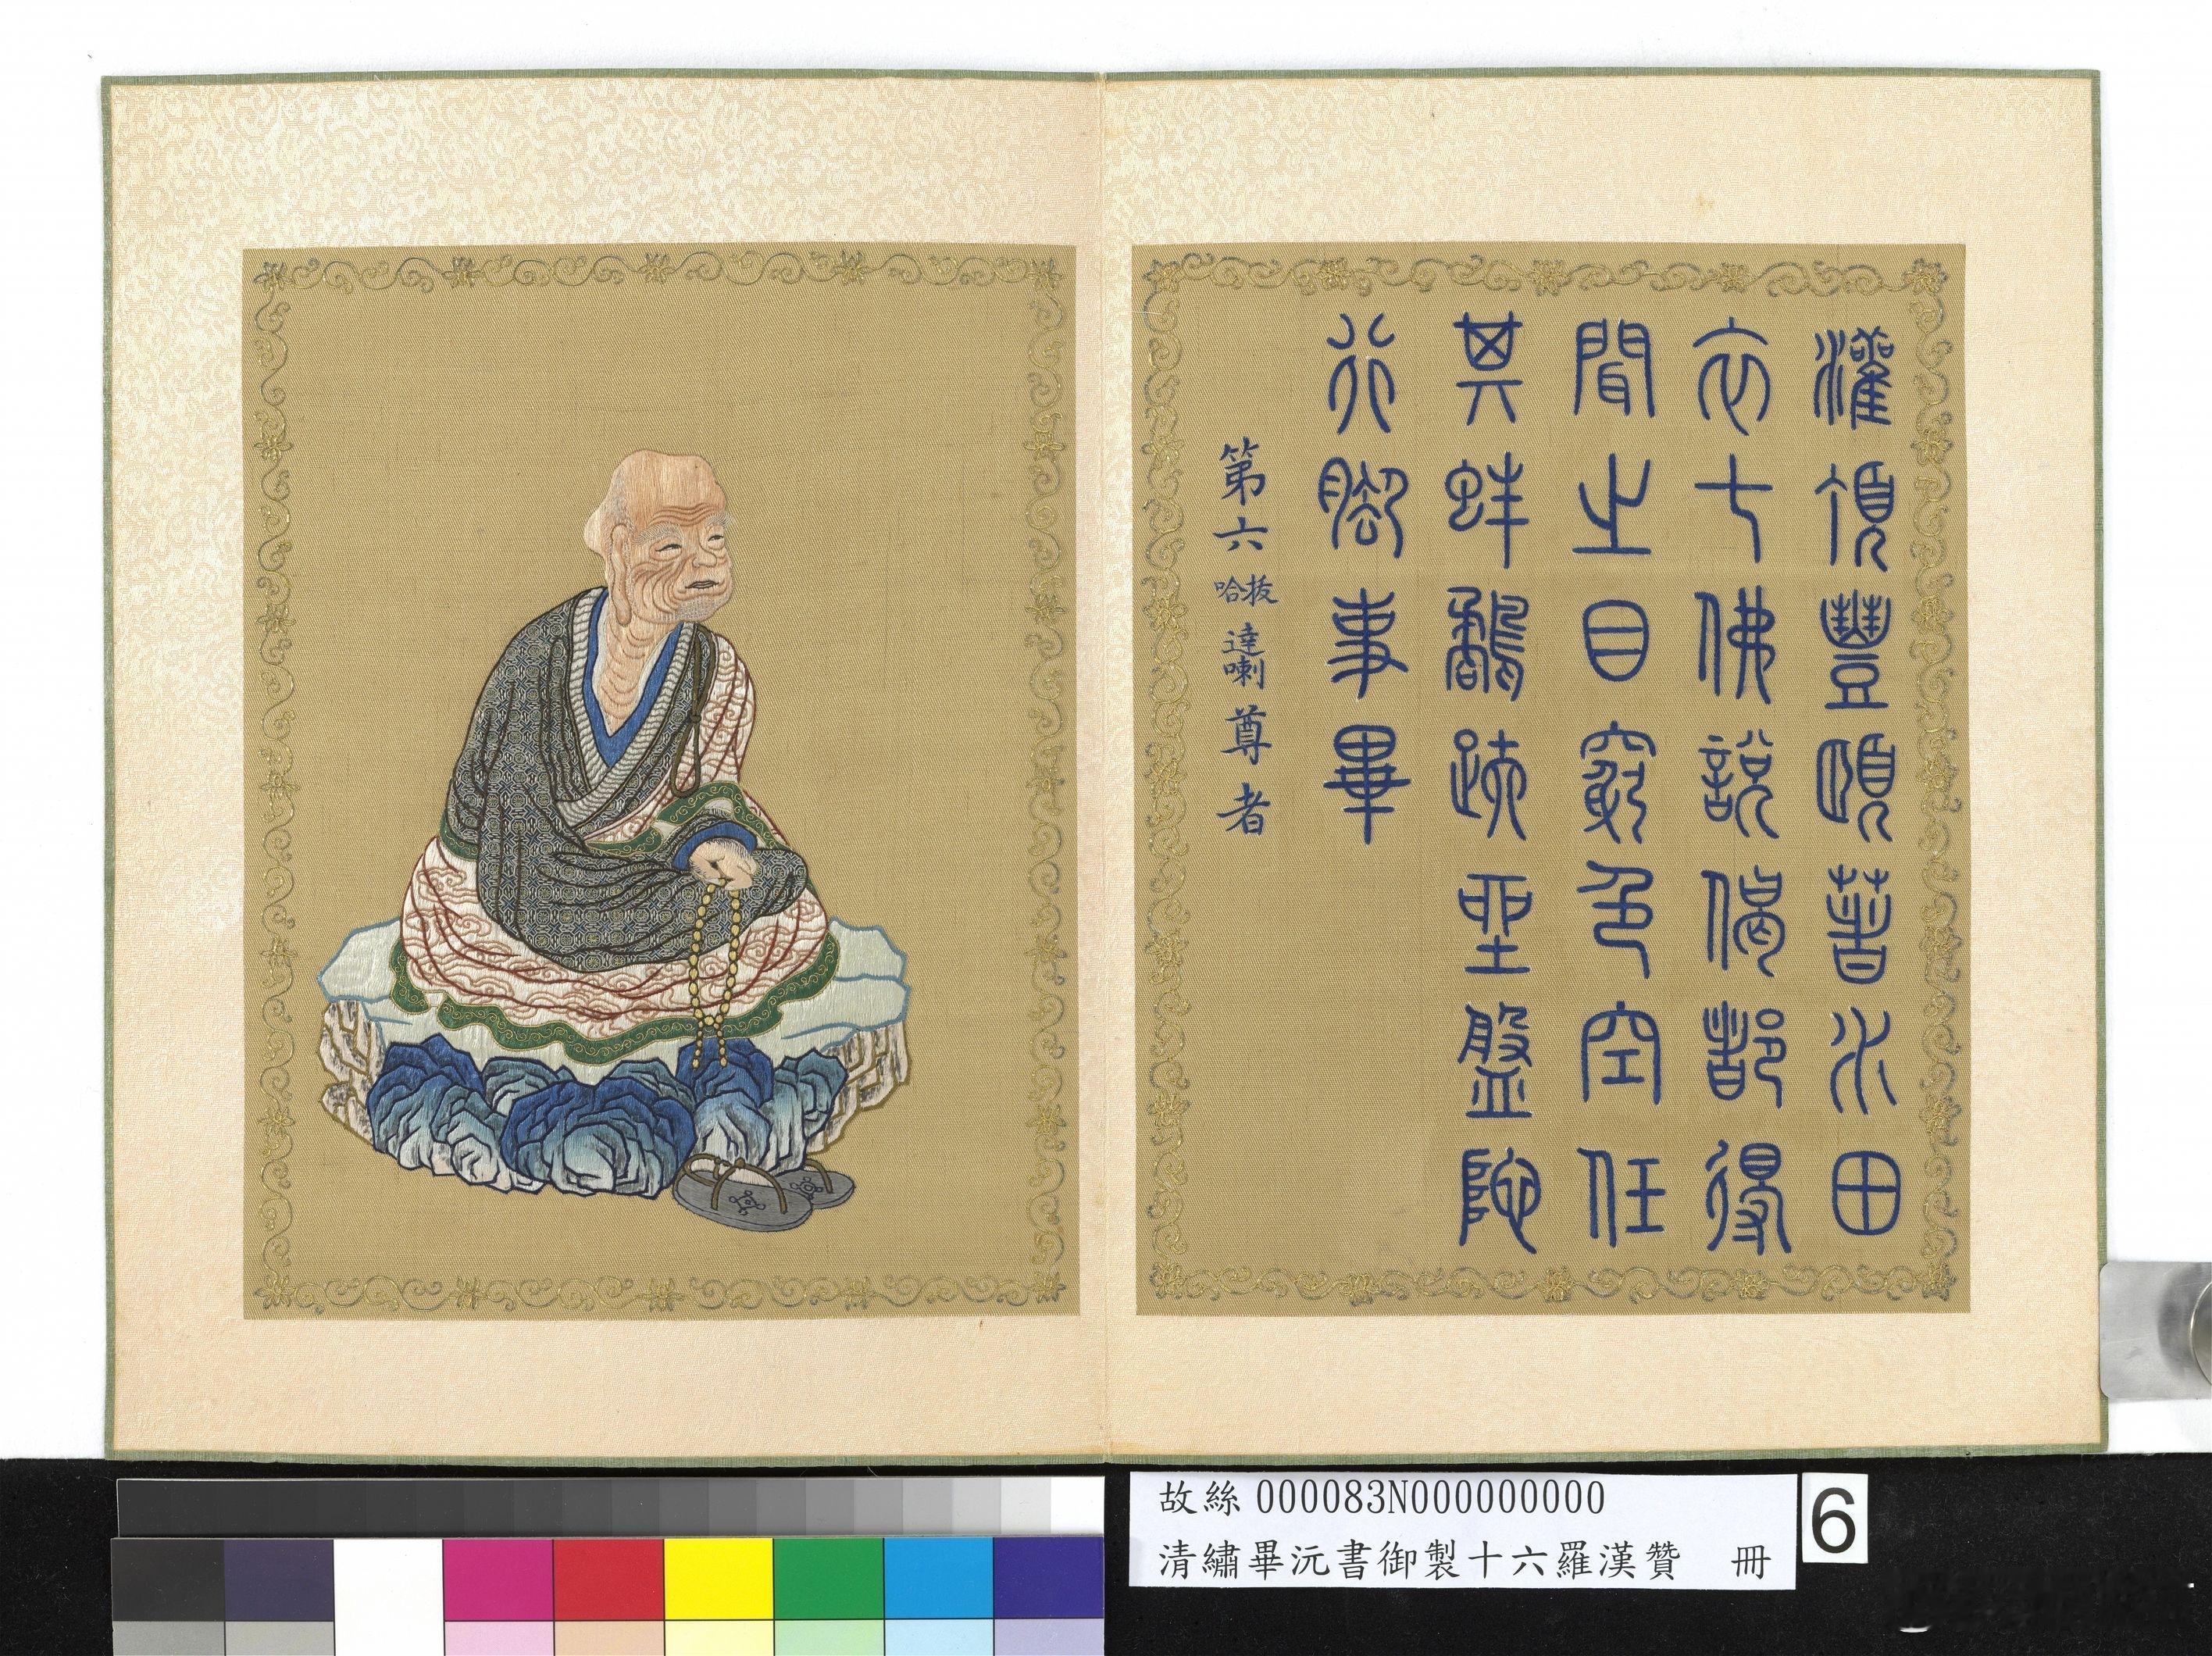 灌頂豐頤著水田
衣七佛說偈都得
聞之目窮色空任
其蚌鷸跡聖盤陀
行腳事畢
第六拔哈達喇尊者
故絲000083N000000000
清繡畢沅書御製十六羅漢贊 冊
6